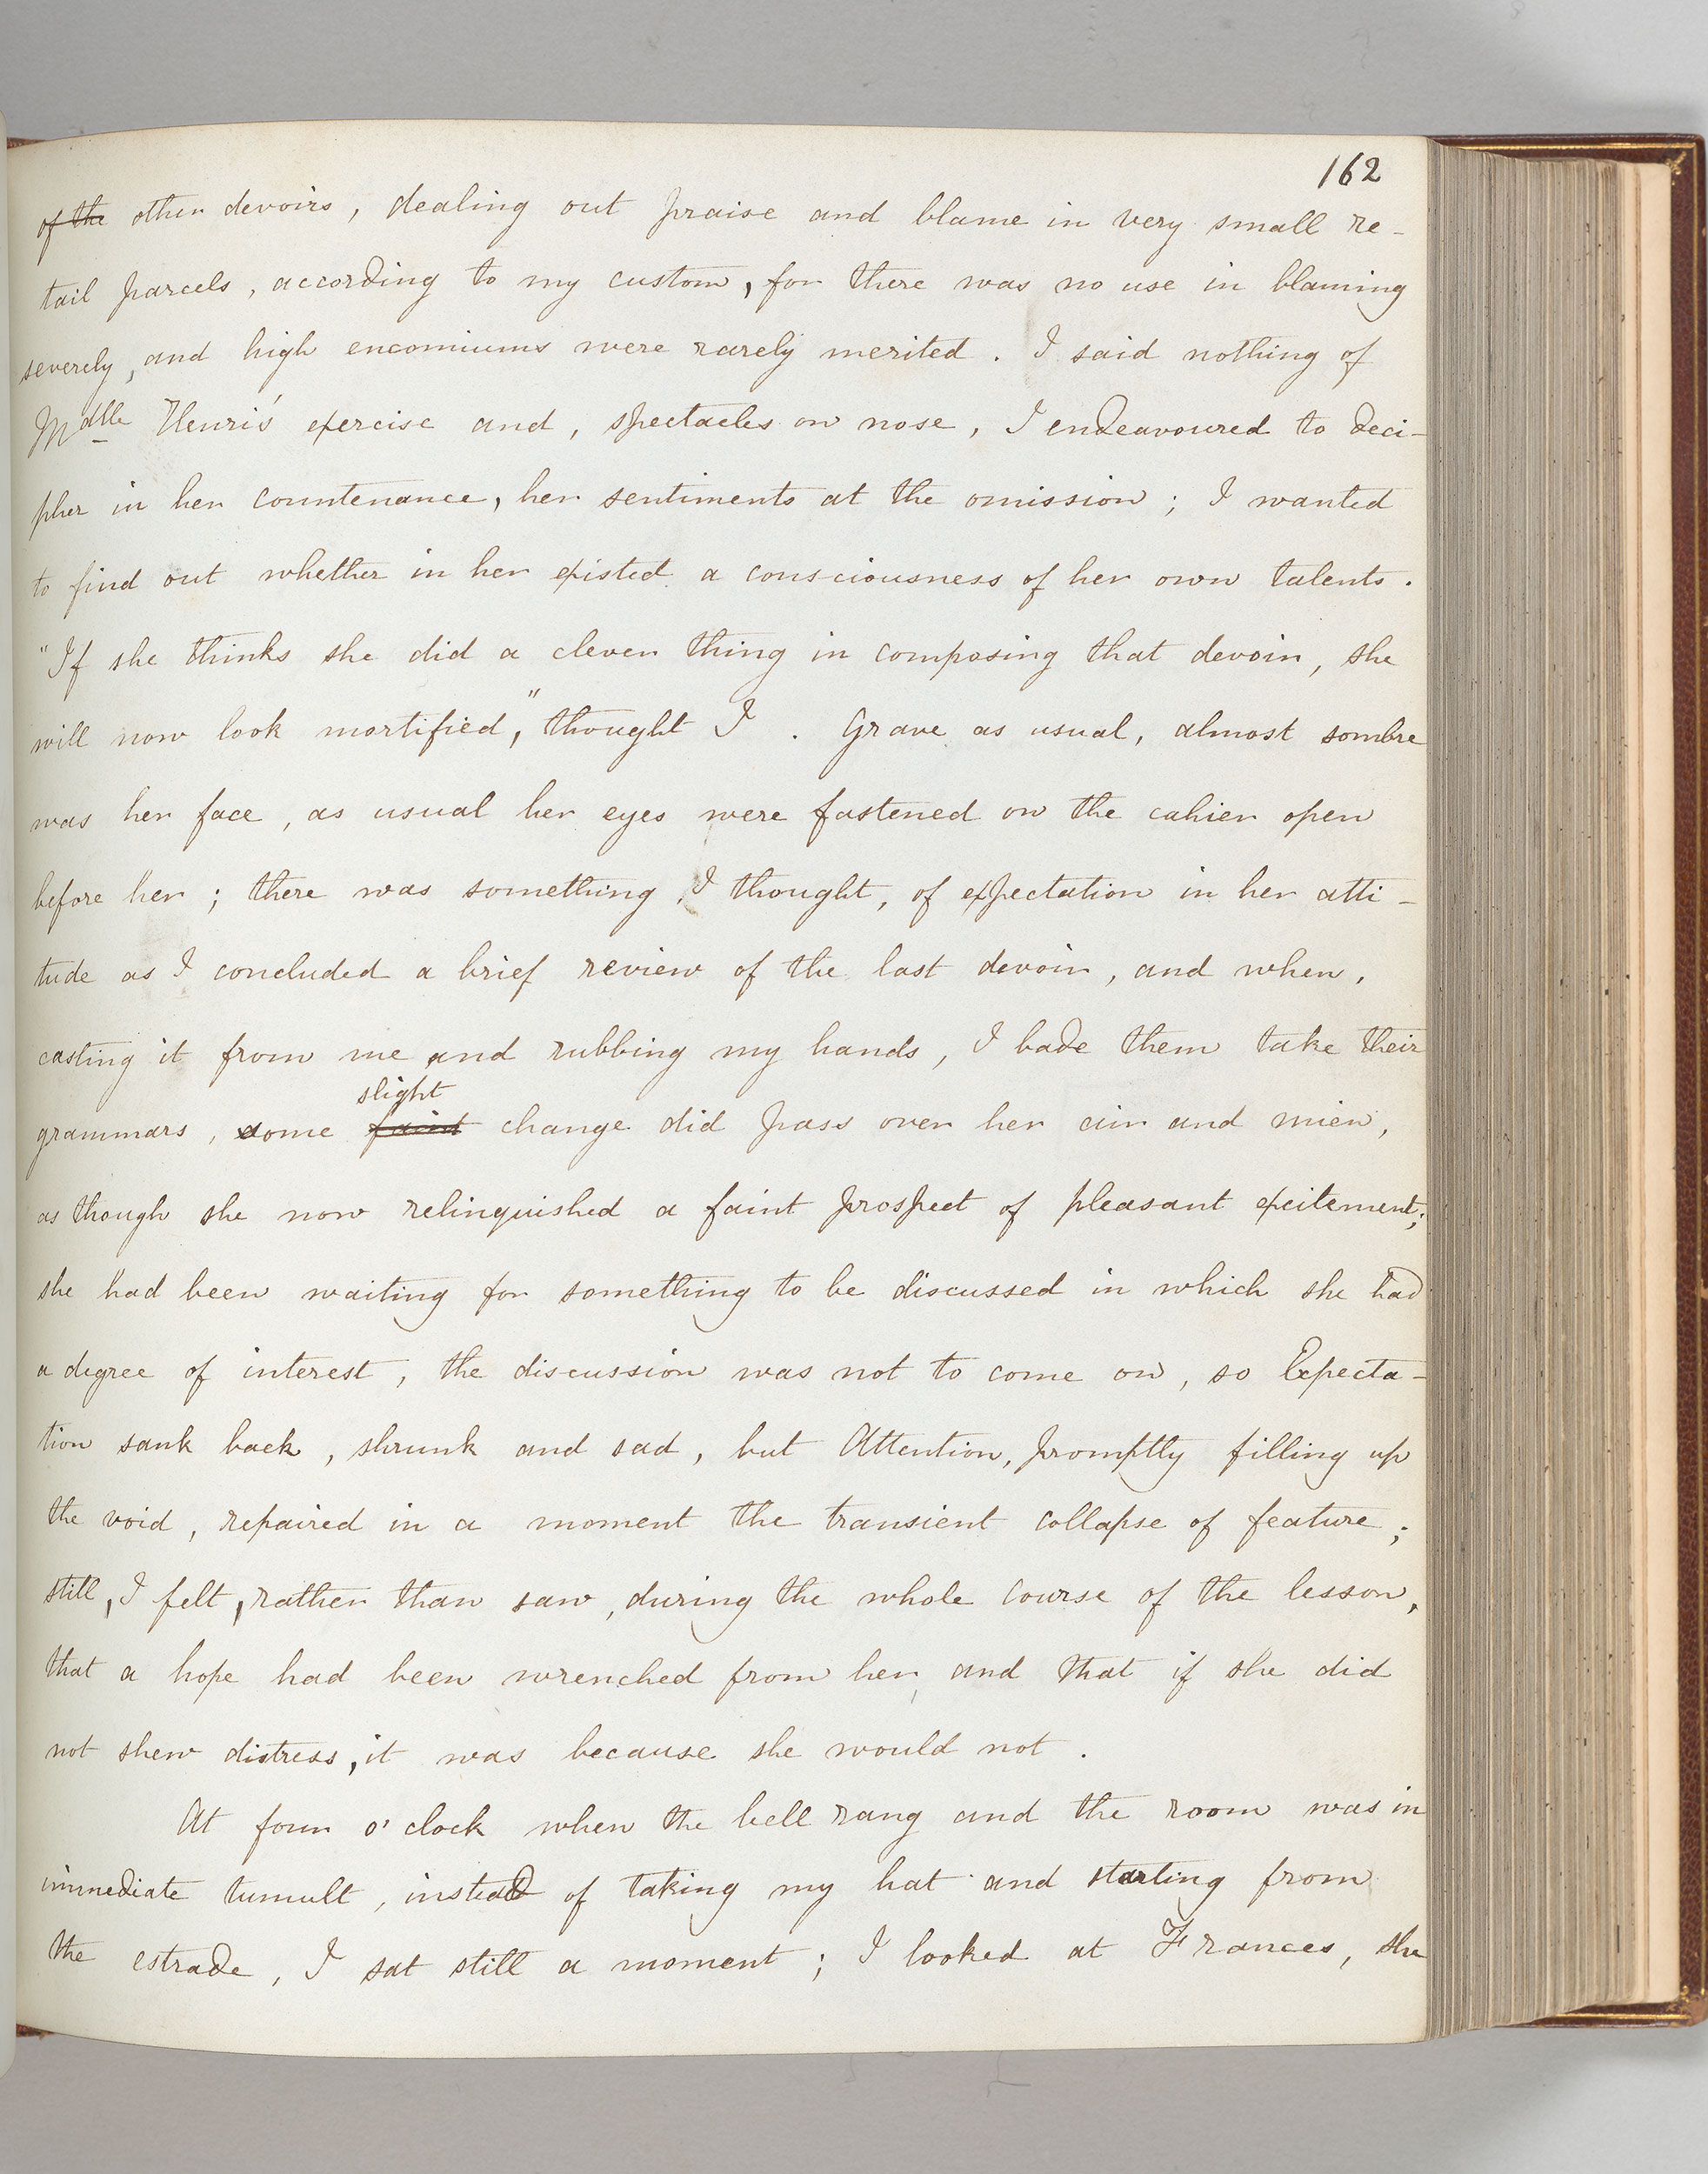 162
of the other devoirs, dealing out praise and blame in very small re-
tail parcels, according to my custom, for there was no use in blaming
severely, and high encomiums were rarely merited. I said nothing of
Mdlle Henri's exercise and, spectacles on nose, I endeavoured to deci-
pher in her countenance, her sentiments at the omission; I wanted
to find out whether in her existed a consciousness of her own talents.
"If she thinks she did a clever thing in composing that devoir, she
will now look mortified," thought I. Grave as usual, almost sombre
was her face, as usual her eyes were fastened on the cahier open
before her; there was something, I thought, of expectation in her atti-
tude as I concluded a brief review of the last devoir, and when,
casting it from me and rubbing my hands, I bade them take their
slight
grammars, some faint change did pass over her air and mien,
as though she now relinquished a faint prospect of pleasant excitement;
she had been waiting for something to be discussed in which she had
a degree of interest, the discussion was not to come on, so Expecta-
tion sank back, shrunk and sad, but Attention, promptly filling up
the void, repaired in a moment the transient collapse of feature;
still, I felt, rather than saw, during the whole course of the lesson,
that a hope had been wrenched from her, and that if she did
not shew distress, it was because she would not.
At four o'clock when the bell rang and the room was in
immediate tumult, instead of taking my hat and starting from
the estrade, I sat still a moment; I looked at Frances, she